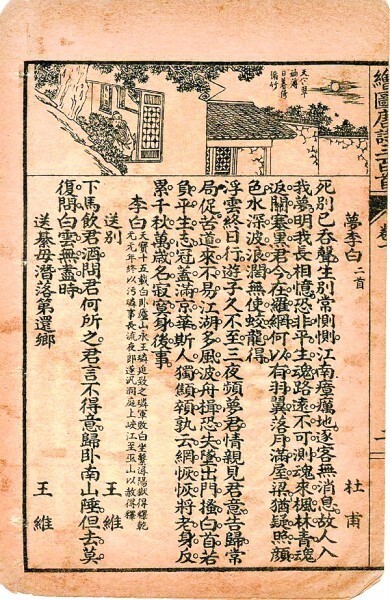 繪圖唐詩三百首
天寒翠
袖薄
日暮倚
脩竹
夢李白 二首 杜甫
死別已吞聲生別常惻惻江南瘴癘地逐客無消息故人入
我夢明我長相憶恐非平生魂路遠不可測魂來楓林青魂
返關塞黑君今在羅網何以有羽翼落月滿屋梁猶疑照顏
色水深波浪闊無使蛟龍得
浮雲終日行遊子久不至三夜頻夢君情親見君意告歸常
局促苦道來不易江湖多風波舟楫恐失墜出門搔白首若
負平生志冠蓋滿京華斯人獨顦顇孰云網恢恢將老身反
累千秋萬歲名寂寞身後事
李白 天寶十五載白臥廬山永王璘迫致之璘軍敗白坐繫潯陽獄得釋乾
元元年終以污璘事長流夜郎遂泛洞庭上峽江至巫山以赦得釋
送別 王維
下馬飲君酒問君何所之君言不得意歸臥南山陲但去莫
復問白雲無盡時
送綦毋潛落第還鄉 王維